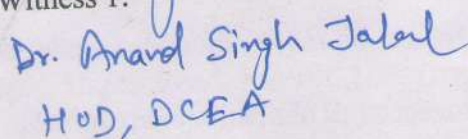 Witness 1:
Dr. Anand Singh Jalal
HOD, DCEA